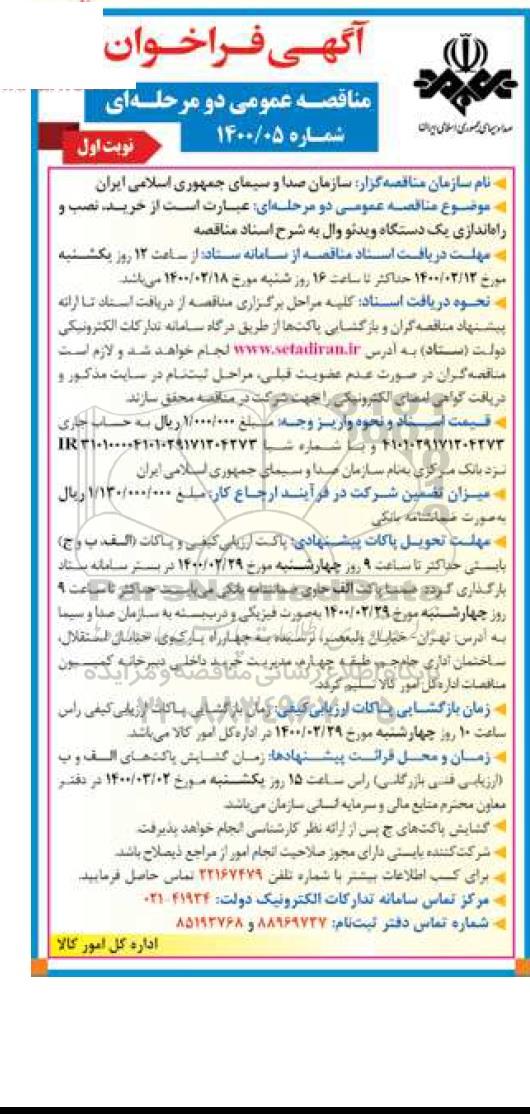 آگهـی فـراخـوان
صدا و سیمای جمهوری اسلامی ایران
مناقصـه عمومی دو مرحلـه‌ای
شمـاره ۱۴۰۰/۰۵
نوبت اول
نام سازمان مناقصه‌گزار: سازمان صدا و سیمای جمهوری اسلامی ایران
موضـوع مناقصـه عمومـی دو مرحلـه‌ای: عبـارت اسـت از خریـد، نصب و
راه‌اندازی یک دستگاه ویدئو وال به شرح اسناد مناقصه
مهلـت دریافـت اسـناد مناقصـه از سـامانه سـتاد: از سـاعت ۱۲ روز یکشـنبه
مورخ ۱۴۰۰/۰۲/۱۲ حداکثر تا ساعت ۱۶ روز شنبه مورخ ۱۴۰۰/۰۲/۱۸ می‌باشد.
نحـوه دریافت اسـناد: کلیـه مراحل برگـزاری مناقصـه از دریافت اسـناد تـا ارائه
پیشـنهاد مناقصه‌گران و بازگشـایی پاکت‌ها از طریق درگاه سـامانه تدارکات الکترونیکی
دولـت (سـتاد) بـه آدرس www.setadiran.ir انجـام خواهـد شـد و لازم اسـت
مناقصه‌گـران در صـورت عـدم عضویـت قبلـی، مراحـل ثبت‌نـام در سـایت مذکـور و
دریافت گواهی امضای الکترونیکی را جهت شرکت در مناقصه محقق سازند.
قـیمت اسـناد و نحوه واریـز وجـه: مـبلغ ۱/۰۰۰/۰۰۰ ریال بـه حسـاب جاری
۴۱۰۱۰۲۹۱۷۱۲۰۴۲۷۳ و یـا شـماره شـبا IR ۳۱۰۱۰۰۰۰۴۱۰۱۰۲۹۱۷۱۲۰۴۲۷۳
نـزد بانک مـرکزی به‌نام سـازمان صـدا و سـیمای جمهوری اسـلامی ایران
میـزان تضمین شـرکت در فرآینـد ارجـاع کار: مبلـغ ۱/۱۳۰/۰۰۰/۰۰۰ ریال
به‌صورت ضمانتنامه بانکی
مهلـت تحویـل پاکات پیشـنهادی: پاکـت ارزیابی کیفـی و پـاکات (الـف، ب و ج)
بایسـتی حداکثر تا سـاعت ۹ روز چهارشـنبه مورخ ۱۴۰۰/۰۲/۲۹ در بسـتر سـامانه سـتاد
بارگـذاری گـردد. ضمنـا پاکـت الف حاوی ضمانتنامه بانکی می‌بایسـت حداکثر تا سـاعت ۹
روز چهارشـنبه مورخ ۱۴۰۰/۰۲/۲۹ به‌صورت فیزیکی و دربسـته به سـازمان صدا و سیما
بـه آدرس: تهـران، خیابـان ولیعصـر، نرسـیده بـه چهـارراه پـارک‌وی، خیابـان اسـتقلال،
سـاختمان اداری جام‌جـم، طبقـه چهـارم، مدیریـت خریـد داخلـی دبیرخانـه کمیسـیون
مناقصات اداره کل امور کالا تسـلیم گردد.
زمان بازگشـایی پـاکات ارزیابی کیفی: زمان بازگشـایی پـاکات ارزیابی کیفی راس
ساعت ۱۰ روز چهارشنبه مورخ ۱۴۰۰/۰۲/۲۹ در اداره کل امور کالا می‌باشد.
زمـان و محـل قرائـت پیشـنهادها: زمـان گشـایش پاکت‌هـای الـف و ب
(ارزیابـی فنـی بازرگانـی) راس سـاعت ۱۵ روز یکشـنبه مـورخ ۱۴۰۰/۰۳/۰۲ در دفتـر
معاون محترم منابع مالی و سرمایه انسانی سازمان می‌باشد.
گشایش پاکت‌های ج پس از ارائه نظر کارشناسی انجام خواهد پذیرفت.
شرکت‌کننده بایستی دارای مجوز صلاحیت انجام امور از مراجع ذیصلاح باشد.
برای کسـب اطلاعات بیشـتر با شماره تلفن ۲۲۱۶۷۴۷۹ تماس حاصل فرمایید.
مرکز تماس سامانه تدارکات الکترونیک دولت: ۴۱۹۳۴-۰۲۱
شماره تماس دفتر ثبت‌نام: ۸۸۹۶۹۷۳۷ و ۸۵۱۹۳۷۶۸
اداره کل امور کالا